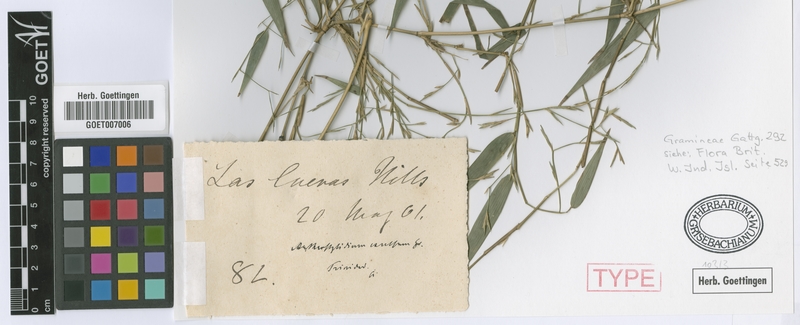 GOET
copyright reserved
0 1 2 3 4 5 6 7 8 9 10
cm
Herb. Goettingen
GOET007006
Las Cuevas Hills
20 May 61.
Arthrostylidium gr.
Trinidad
82.
Gramineae Gattg. 292
siehe: Flora Brit.
W. Ind. Isl. Seite 529
HERBARIUM
GRISEBACHIANUM
TYPE
Herb. Goettingen